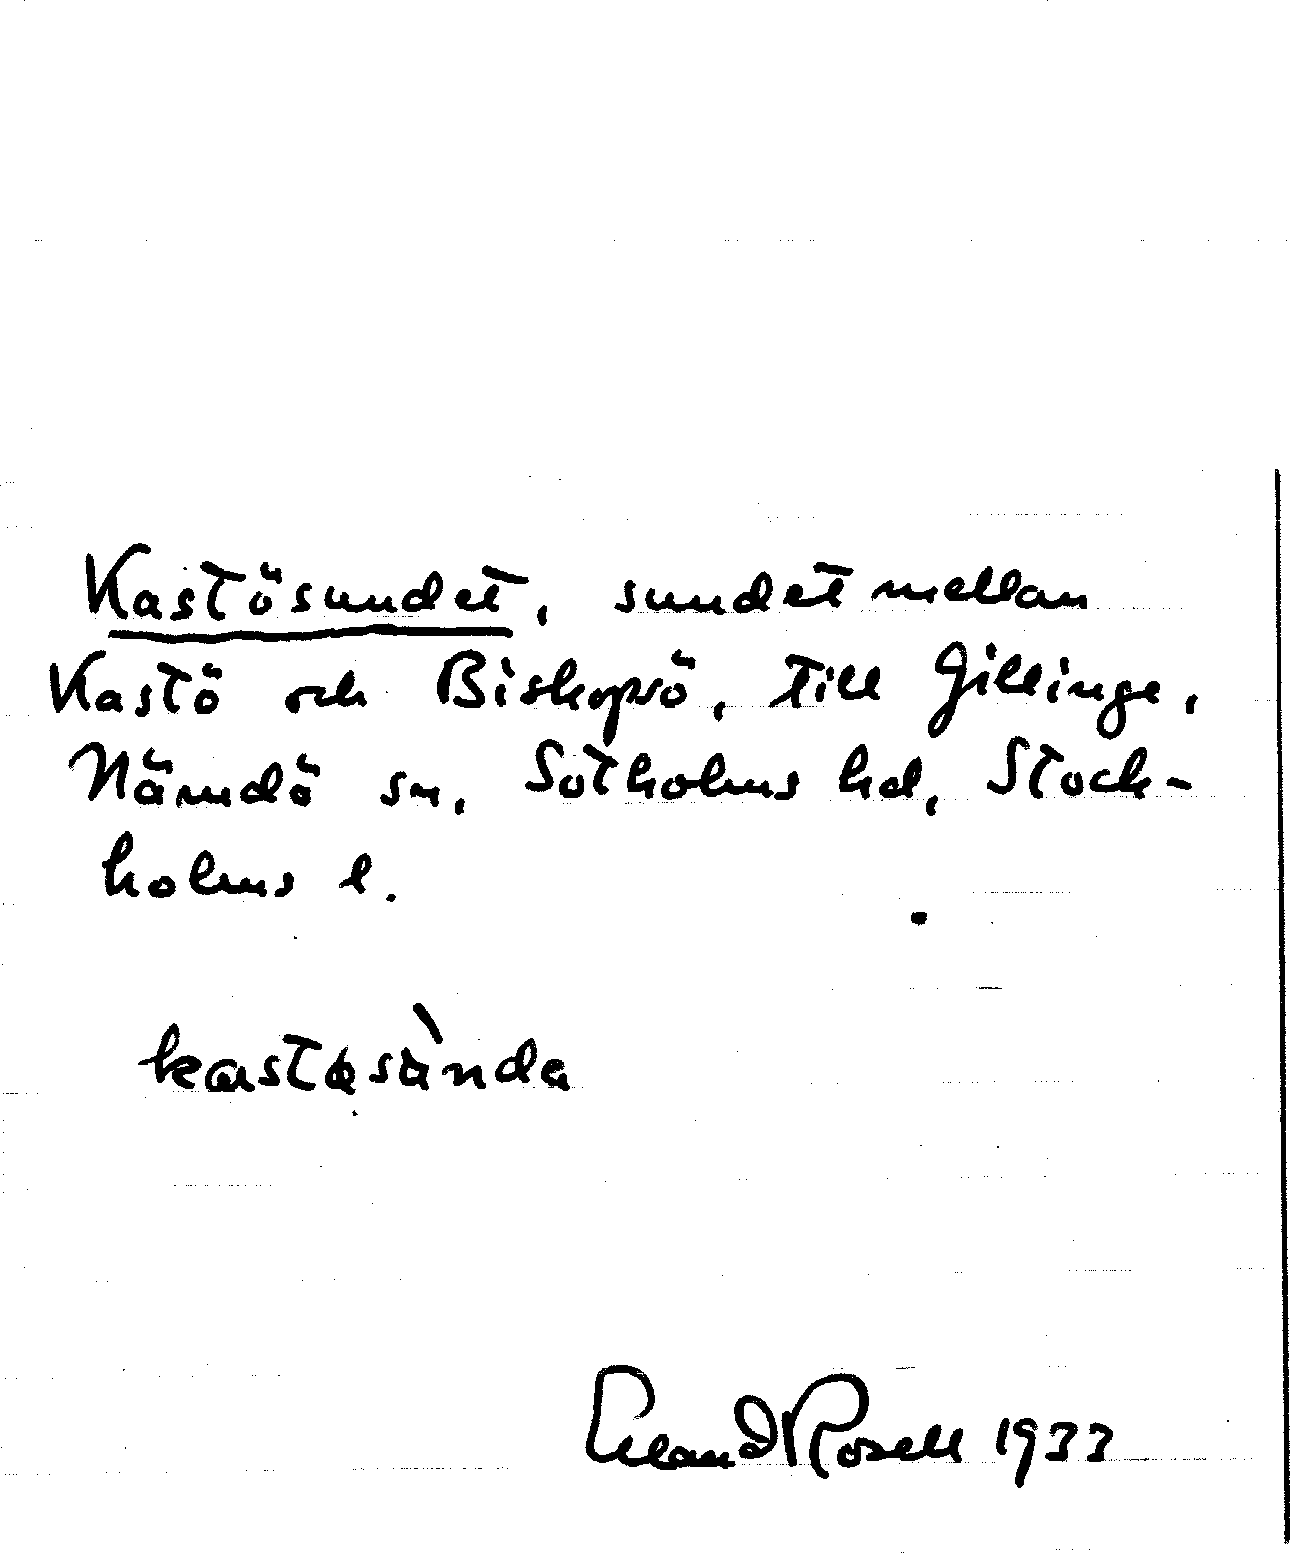 Kastösundet, sundet mellan
Kastö och Biskopsö, till Gillinge,
Nämdö sn, Sotholms hd, Stock-
holms l.
Erland Rosell 1933